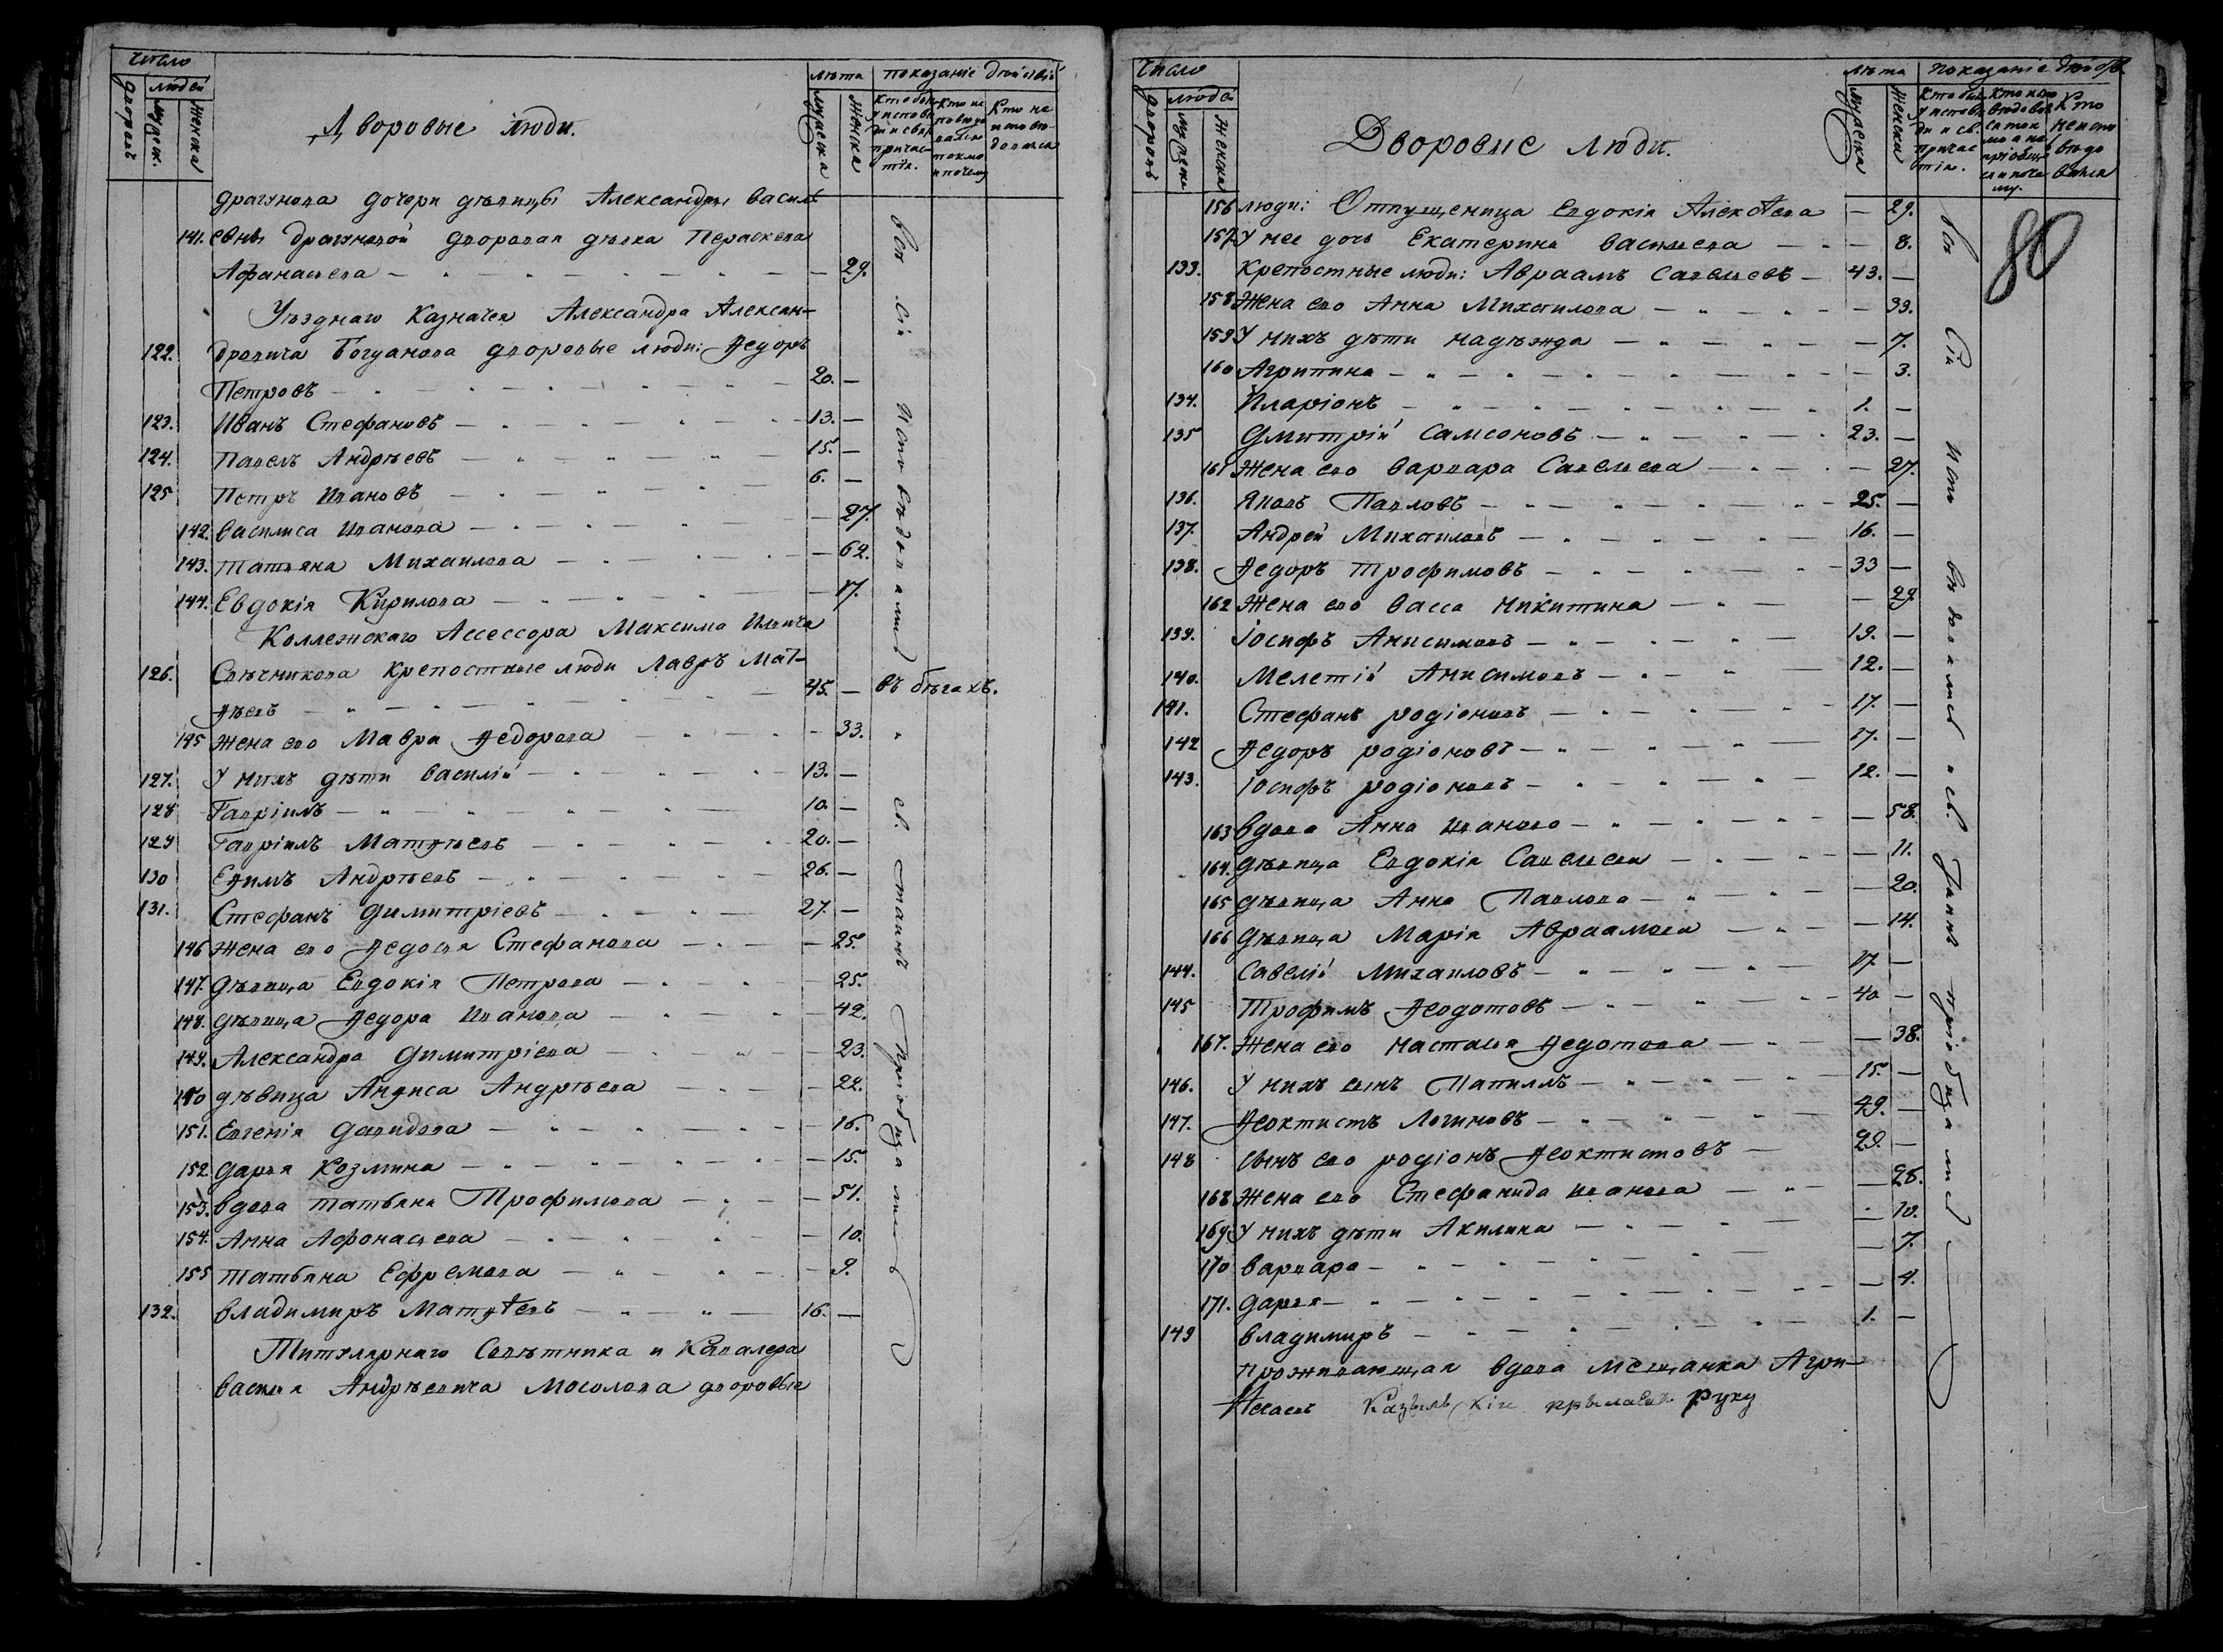 Число
людей
дворовъ
мужеск.
женска
Дворовые люди.
лѣта
показаніе дѣйствія
мужеска
женска
Кто былъ у исповеди и свят. причастія.
Кто не исповѣдовался
драгунова дочери дѣвицы Александры Василь
141. евны Драгуновой дворовая дѣвка Параскева
Афанасьева — 29.
Уѣзднаго Казначея Александра Алексан-
122. дровича Богданова дворовые люди: Ѳедоръ
Петровъ — 20. —
123. Иванъ Стефановъ — 13. —
124. Павелъ Андрѣевъ — 15. —
125 Петръ Ивановъ — 6. —
142. Василиса Иванова — 27.
143. Татьяна Михаилова — 62.
144. Евдокія Кирилова — 17.
Коллежскаго Ассессора Максима Ильича
126. Свѣчникова крепостные люди Лавръ Мат-
ѳѣевъ — 45. — въ бѣгахъ.
145 Жена его Мавра Ѳедорова — 33. "
127. У нихъ дѣти Василій — 13. —
128 Гавріилъ — 10. —
129 Гавріилъ Матѳѣевъ — 20. —
130 Ефимъ Андрѣевъ — 26. —
131. Стефанъ Димитріевъ — 27. —
146 Жена его Ѳедосья Стефанова — 25.
147. Дѣвица Евдокія Петрова — 25.
148. Дѣвица Ѳедора Иванова — 42.
149. Александра Димитріева — 23.
150 дѣвица Анѳиса Андрѣева — 22.
151. Евгенія Давидова — 16.
152. Дарья Козмина — 15.
153. Вдова Татьяна Трофимова — 51.
154. Анна Афонасьева — 10.
155 Татьяна Ефремова — 9.
132. Владимиръ Матѳѣевъ — 16. —
Титулярнаго Совѣтника и Кавалера
Василья Андрѣевича Мосолова дворовые
вси сіи исповѣдовались
св. таинъ пріобщались
Число
людей
дворовъ
мужеск
женска
Дворовые люди.
лѣта
показаніе дѣйств.
мужеска
женска
Кто былъ у исповѣди и св. причастія.
Кто неисповѣдовался
80
156 люди: Отпущеница Евдокія Алексѣева — 29.
157 У нее дочь Екатерина Васильева — 8.
133. Крепостные люди: Авраамъ Савельевъ — 43. —
158 Жена его Анна Михаилова — 33.
159 У нихъ дѣти Надѣжда — 7.
160 Агрипина — 3.
134. Иларіонъ — 1. —
135 Дмитрій Самсоновъ — 23. —
161 Жена его Варвара Савельева — 27.
136. Яковъ Павловъ — 25. —
137. Андрей Михаиловъ — 16. —
138. Ѳедоръ Трофимовъ — 33 —
162 Жена его Васса Никитина — 29.
139. Іосифъ Анисимовъ — 19. —
140. Мелетій Анисимовъ — 12. —
141. Стефанъ Родіоновъ — 17. —
142 Ѳедоръ Родіоновъ — 17. —
143. Іосифъ Родіоновъ — 12. —
163 Вдова Анна Иванова — 58.
164. Дѣвица Евдокія Савельева — 11.
165 Дѣвица Анна Павлова — 20.
166 Дѣвица Марія Авраамова — 14.
144. Савелій Михаиловъ — 17. —
145 Трофимъ Ѳеодотовъ — 40 —
167. Жена его Настасья Ѳедотова — 38.
146. У нихъ сынъ Папилъ — 15. —
147. Ѳеоктистъ Логиновъ — 49. —
148 Сынъ его Родіонъ Ѳеоктистовъ — 29. —
168 Жена его Стефанида Иванова — 26.
169 У нихъ дѣти Акилина — 10.
170 Варвара — 7.
171. Дарья — 4.
149 Владимиръ — 1. —
Проживающая вдова мещанка Агри-
руку
вси сіи исповѣдовались и св. таинъ пріобщались